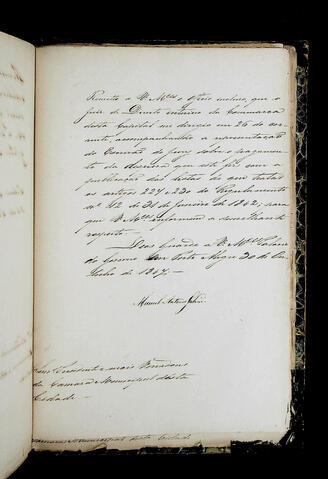 Remetto a V. M.ces o officio incluso, que o
Juiz de Direito interino da Commarca
desta Capital me dirigio em 26 do cor-
rente, acompanhando a representação
do Escrivão do Jury sobre o pagamen-
to da despeza que este fez com a
publicação das listas de que tratão
os artigos 227 e 230 do Regulamento
Nº 42 de 31 de Janeiro de 1842, para
que V. M.ces informem a semelhante
respeito.
Deos Guarde a V. M.ces Palacio
do Governo em Porto Alegre 30 de
Junho de 1847.
Manoel Antonio
Snrs. Presidente e mais Vereadores
da Camara Municipal desta
Cidade.
Camara Municipal desta Cidade